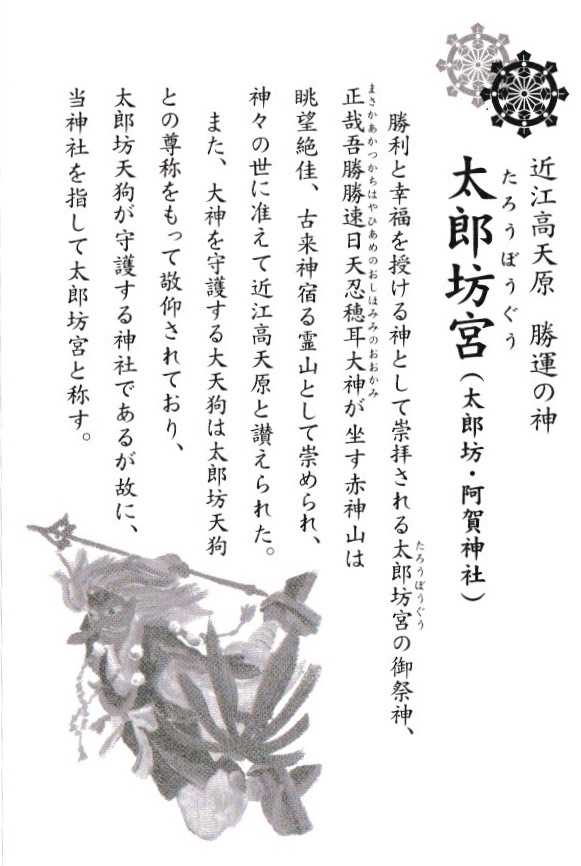 近江高天原　勝運の神
太郎坊宮（太郎坊・阿賀神社）
たろうぼうぐう
勝利と幸福を授ける神として崇拝される太郎坊宮の御祭神、
たろうぼうぐう
正哉吾勝勝速日天忍穂耳大神が坐す赤神山は
まさかあかつかちはやひあめのおしほみみのおおかみ
眺望絶佳、古来神宿る霊山として崇められ、
神々の世に准えて近江高天原と讃えられた。
また、大神を守護する大天狗は太郎坊天狗
との尊称をもって敬仰されており、
太郎坊天狗が守護する神社であるが故に、
当神社を指して太郎坊宮と称す。